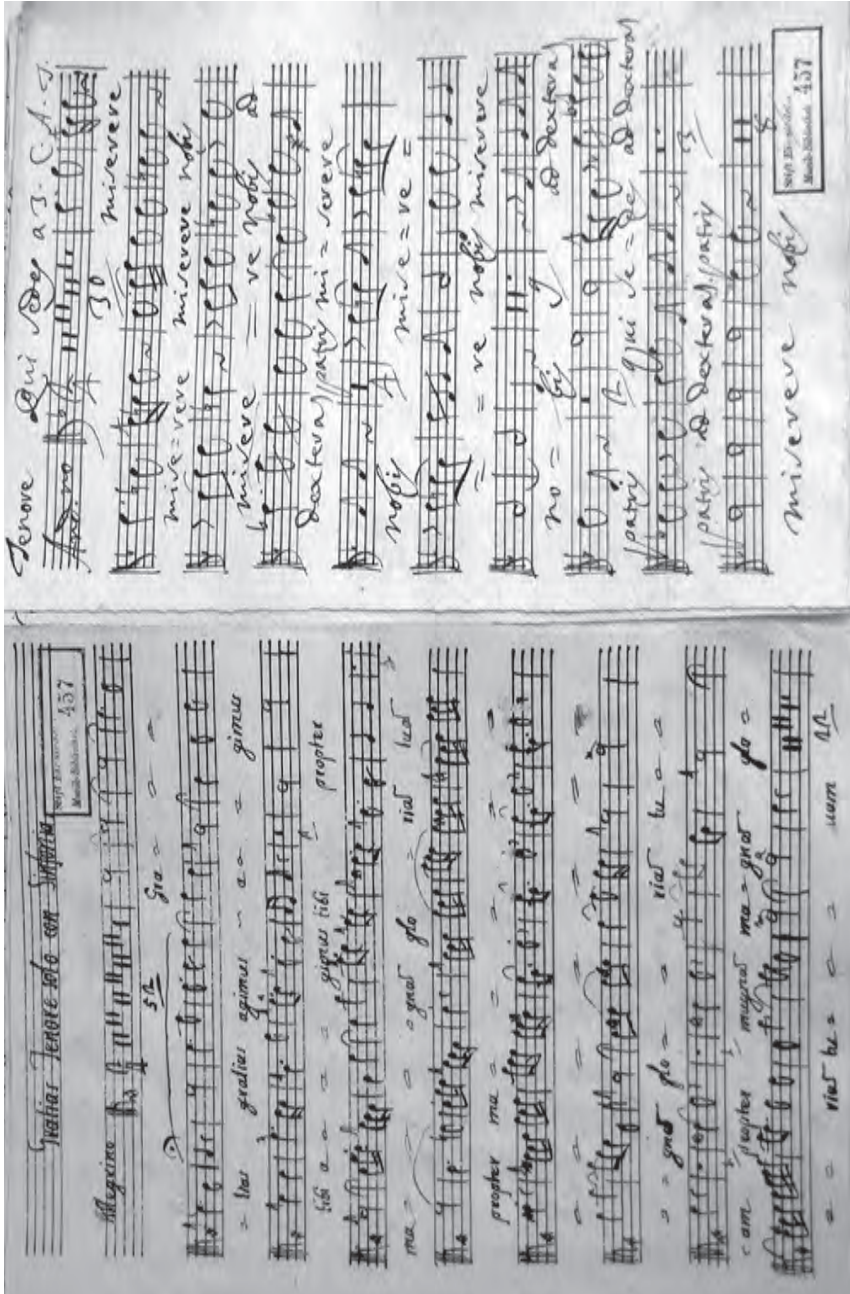 Gratias Tenore solo con Sinfonia
Stift Einsiedeln
Musik-Bibliothek 437
Allegrino
Gra = = =
= tias gratias agimus = = = gimus
tibi a = = = gimus tibi propter
ma = = = gnaȓ glo = riaȓ tuaȓ
propter ma = = = = =
= = = = = = =
= = gnaȓ glo = = riaȓ tu = =
= am propter magnaȓ ma = gnaȓ glo =
= = riaȓ tu = = = uam
Tenore Qui sedes a 3. C. A. T.
And.no
30 miserere
mise = rere miserere nobis
miserere = re nobis ad
dexteraȓ patris mi = serere
nobis mise = re =
= = re nobis miserere
no = bis ad dexteraȓ
patris qui se = des ad dexteraȓ
patris ad dexteraȓ patris 3
miserere nobis
Stift Einsiedeln
Musik-Bibliothek 437